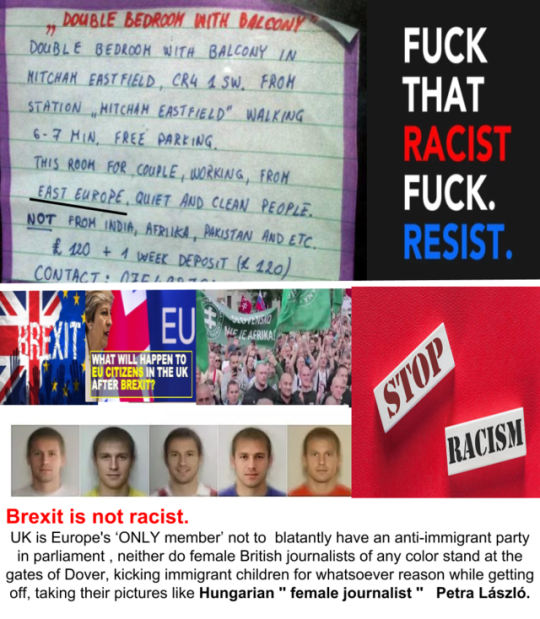 „DOUBLE BEDROOM WITH BALCONY"
DOUBLE BEDROOM WITH BALCONY IN
MITCHAM EASTFIELD, CR4 1SW. FROM
STATION „MITCHAM EASTFIELD" WALKING
6-7 MIN. FREE PARKING.
THIS ROOM FOR COUPLE, WORKING, FROM
EAST EUROPE, QUIET AND CLEAN PEOPLE.
NOT FROM INDIA, AFRIKA, PAKISTAN AND ETC.
£120 + 1 WEEK DEPOSIT (£120)
CONTACT:
FUCK
THAT
RACIST
FUCK.
RESIST.
BREXIT
EU
WHAT WILL HAPPEN TO
EU CITIZENS IN THE UK
AFTER BREXIT?
SLOVENSKO
NIE JE AFRIKA!
STOP
RACISM
Brexit is not racist.
UK is Europe's ‘ONLY member’ not to blatantly have an anti-immigrant party
in parliament , neither do female British journalists of any color stand at the
gates of Dover, kicking immigrant children for whatsoever reason while getting
off, taking their pictures like Hungarian " female journalist " Petra László.